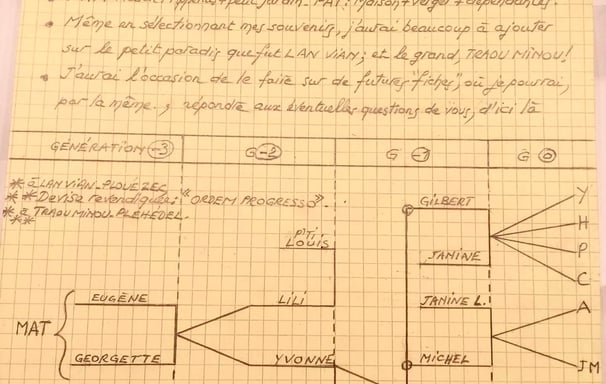 MAT: Maison + verger + dépendances.
• Même en sélectionnant mes souvenirs, j'aurai beaucoup à ajouter
sur le petit paradis que fut LAN VIAN; et le grand, TRAOU MINOU!
• J'aurai l'occasion de le faire sur de futures "fiches", où je pourrai,
par là même, répondre aux éventuelles questions de vous, d'ici là
GÉNÉRATION -3 G -2 G -1 G 0
* à LAN VIAN-PLOUÉZEC
** Devise revendiquée: "ORDEM PROGRESSO"
* à TRAOU MINOU-PLÉHÉDEL.
**
GILBERT
P'TI
LOUIS
JANINE
Y
H
P
C
EUGÈNE LILI JANINE L. A
MAT
GEORGETTE YVONNE MICHEL JM